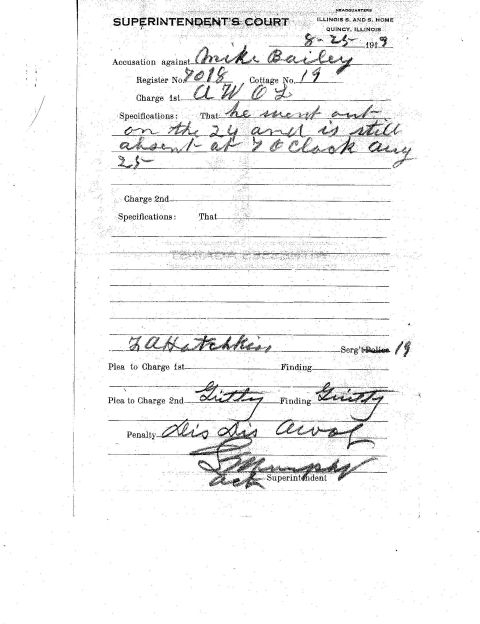 HEADQUARTERS
SUPERINTENDENT'S COURT
ILLINOIS S. AND S. HOME
QUINCY, ILLINOIS
8-25 1919
Accusation against Mike Bailey
Register No. 7018 Cottage No. 19
Charge 1st A W O L
Specifications: That he went out
on the 24 and is still
absent at 7 OClock Aug
25
Charge 2nd
Specifications: That
Serg't Police 19
Plea to Charge 1st Finding
Plea to Charge 2nd Gitty Finding Guitty
Penalty Dis Dis Awol
Murphy
Act Superintendent